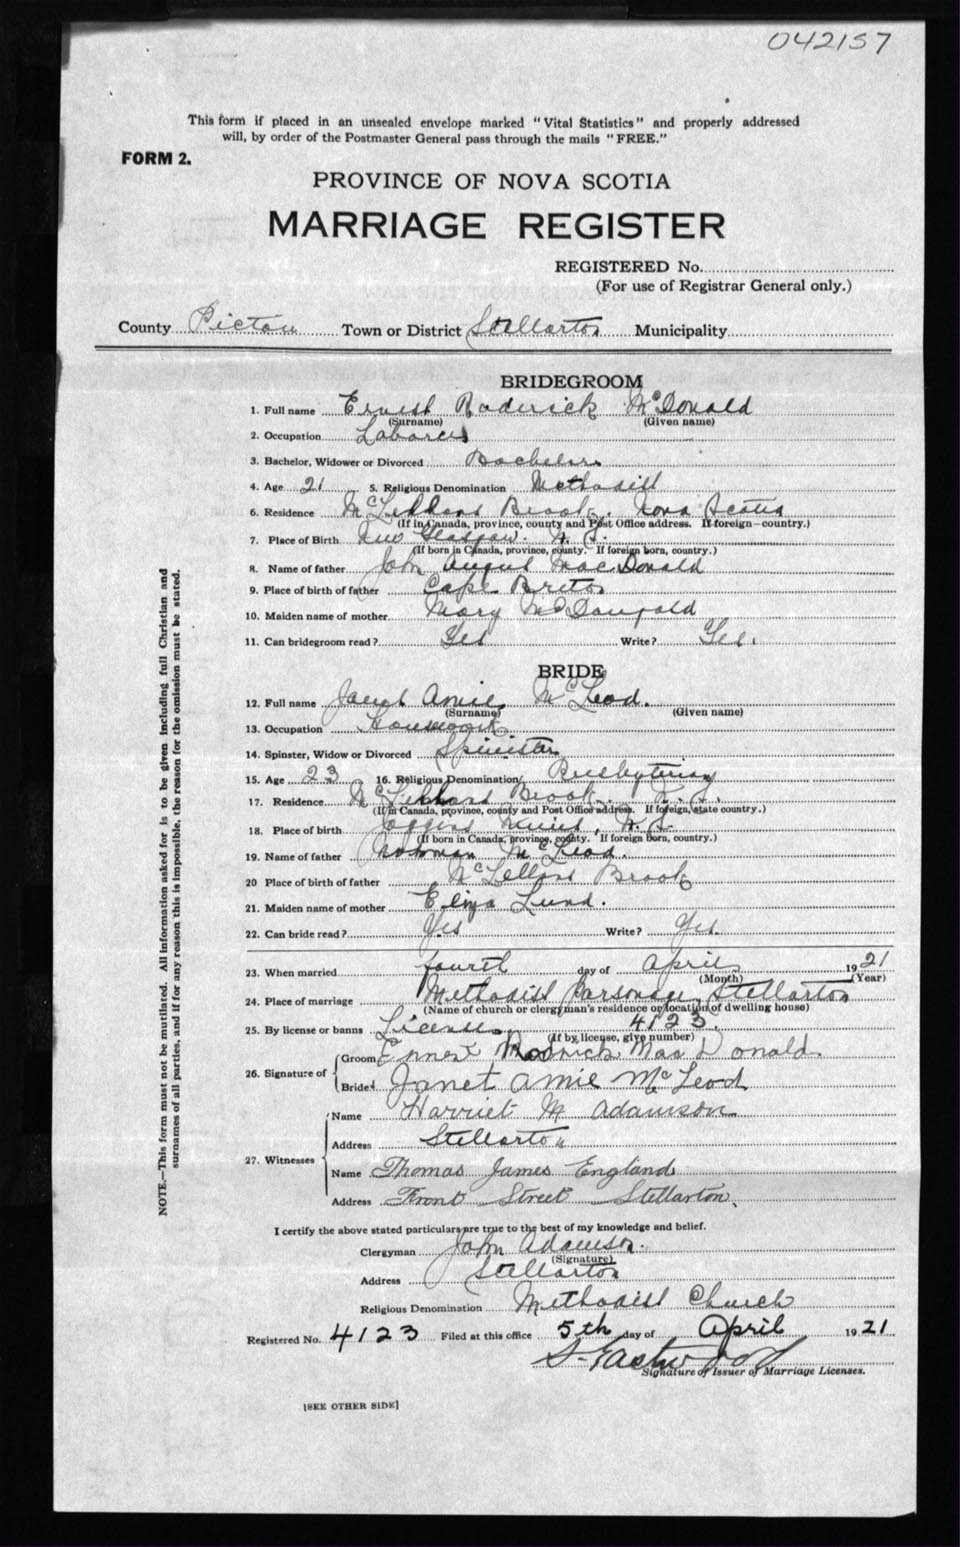 042157
This form if placed in an unsealed envelope marked "Vital Statistics" and properly addressed
will, by order of the Postmaster General pass through the mails "FREE."
FORM 2.
PROVINCE OF NOVA SCOTIA
MARRIAGE REGISTER
REGISTERED No.
(For use of Registrar General only.)
County Pictou Town or District Stellarton Municipality
BRIDEGROOM
1. Full name Ernest Roderick McDonald
(Surname) (Given name)
2. Occupation Laborer
3. Bachelor, Widower or Divorced Bachelor
4. Age 21 5. Religious Denomination Methodist
6. Residence McLellans Brook. Nova Scotia
(If in Canada, province, county and Post Office address. If foreign—country.)
7. Place of Birth New Glasgow. N. S.
(If born in Canada, province, county. If foreign born, country.)
8. Name of father John Angus MacDonald
9. Place of birth of father Cape Breton
10. Maiden name of mother Mary McDougald
11. Can bridegroom read? Yes Write? Yes.
BRIDE
12. Full name Janet Amie McLeod.
(Surname) (Given name)
13. Occupation Housework
14. Spinster, Widow or Divorced Spinister
15. Age 23 16. Religious Denomination Presbyterian
17. Residence McLellans Brook. N. S.
(If in Canada, province, county and Post Office address. If foreign, state country.)
18. Place of birth Joggins Mines, N. S.
(If born in Canada, province, county. If foreign born, country.)
19. Name of father Norman McLeod.
20 Place of birth of father McLellans Brook
21. Maiden name of mother Eliza Lund.
22. Can bride read? Yes Write? Yes.
23. When married fourth day of April 1921
(Month) (Year)
24. Place of marriage Methodist Parsonage, Stellarton
(Name of church or clergyman's residence or location of dwelling house)
25. By license or banns License. 4123.
(If by license, give number)
26. Signature of
Groom Ernest Rodrick MacDonald
Bride Janet Amie McLeod
27. Witnesses
Name Harriet M Adamson
Address Stellarton
Name Thomas James England
Address Front Street Stellarton.
I certify the above stated particulars are true to the best of my knowledge and belief.
Clergyman John Adamson.
(Signature)
Address Stellarton
Religious Denomination Methodist Church
Registered No. 4123 Filed at this office 5th day of April 1921
S. Eastwood
Signature of Issuer of Marriage Licenses.
[SEE OTHER SIDE]
NOTE.—This form must not be mutilated. All information asked for is to be given including full Christian and
surnames of all parties, and if for any reason this is impossible, the reason for the omission must be stated.